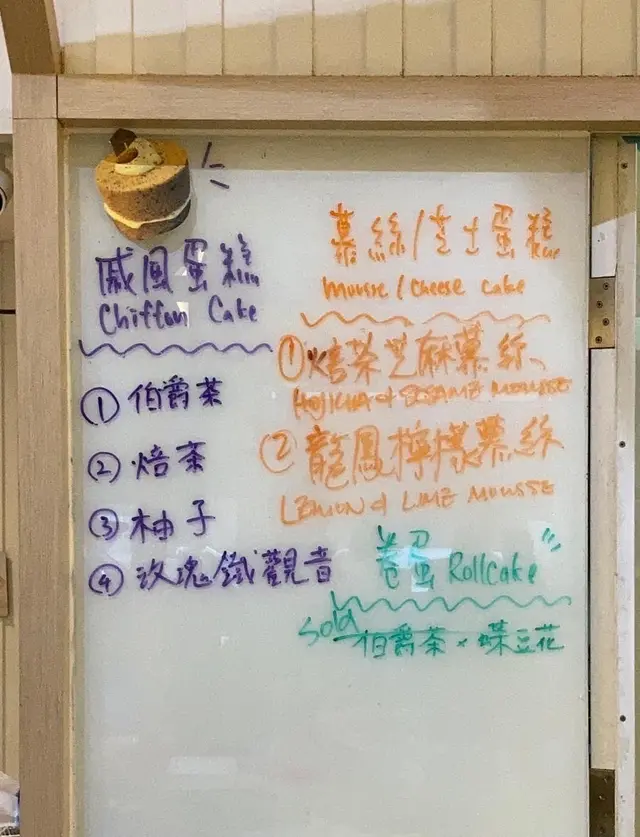 戚風蛋糕
Chiffon Cake
① 伯爵茶
② 焙茶
③ 柚子
④ 玫瑰鐵觀音
慕絲/芝士蛋糕
mousse / Cheese Cake
① 焙茶芝麻慕絲
HOJICHA & SESAME MOUSSE
② 龍鳳檸檬慕絲
LEMON & LIME MOUSSE
卷蛋 Rollcake
Sold
伯爵茶 × 蝶豆花